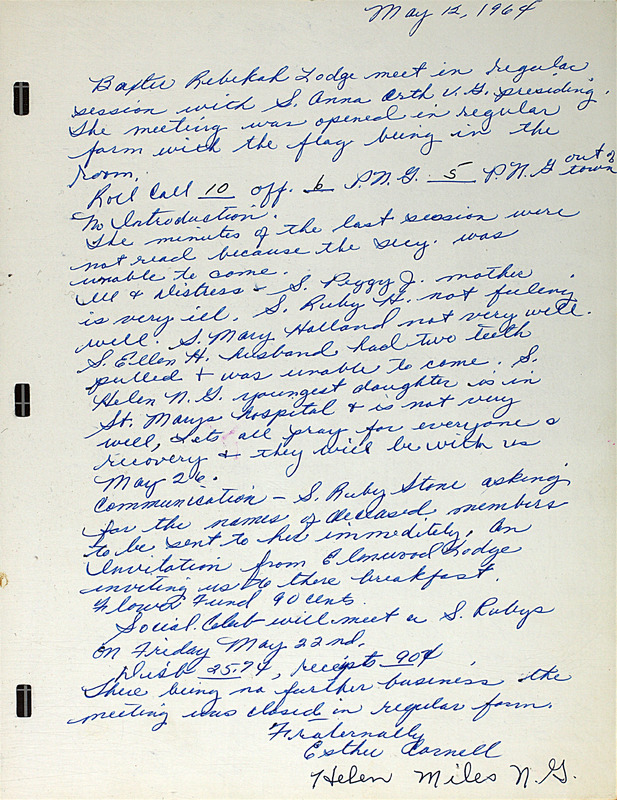 May 12, 1964
Baxter Rebekah Lodge meet in regular
session with S. Anna Orth V.G. presiding.
The meeting was opened in regular
form with the flag being in the
room.
Roll Call 10 off. 6 P.N.G. 5 P.N.G out of town
No Introduction.
The minutes of the last session were
not read because the secy. was
unable to come.
Ill & Distress - S. Peggy J. mother
is very ill. S. Ruby H. not feeling
well. S. Mary Holland not very well.
S. Ellen H. husband had two teeth
pulled & was unable to come. S.
Helen N.G. youngest daughter is in
St. Marys hospital & is not very
well, Lets all pray for everyone s
recovery & they will be with us
May 26.
Communication - S. Ruby Stone asking
for the names of deceased members
to be sent to her immeditely. An
Invitation from Lodge
inviting us to there breakfast.
Flower Fund 90 cents.
Social Club will meet a S. Rubys
on Friday May 22nd.
Disb 25.74, receipts 90¢
There being no further business the
meeting was closed in regular form.
Fraternally
Esther Cornell
Helen Miles N.G.